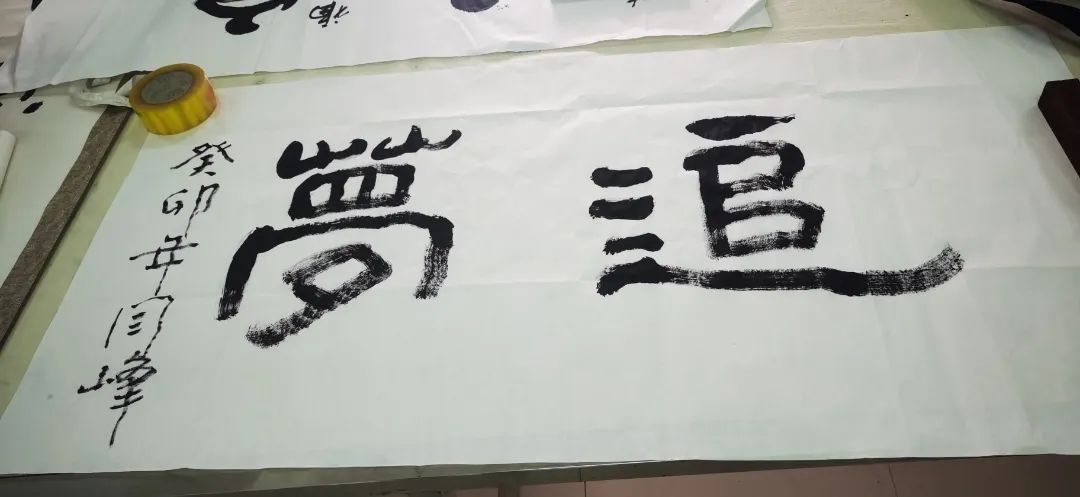 追夢
癸卯年闫峰